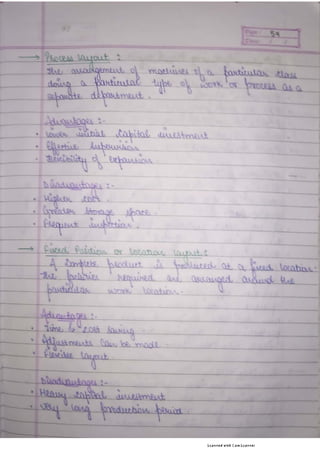 Page: 59
Date: / /
→ Process layout :
The arrangement of machines of a particular class
doing a particular type of work or process as a
separate department.
Advantages :-
• Lower initial Capital investment
• Effective Supervision
• Flexibility of expansion
Disadvantages :-
• Higher cost.
• Greater Storage Space.
• Frequent inspection.
→ Fixed Position or Location layout :
A Complete product is produced at a fixed location.
The required are arranged around the
particular work location.
Advantages :-
• Time & Cost Saving
• Adjustments Can be made
• Flexible Layout
Disadvantages :-
• Heavy Capital investment
• Very long production period.
Scanned with CamScanner